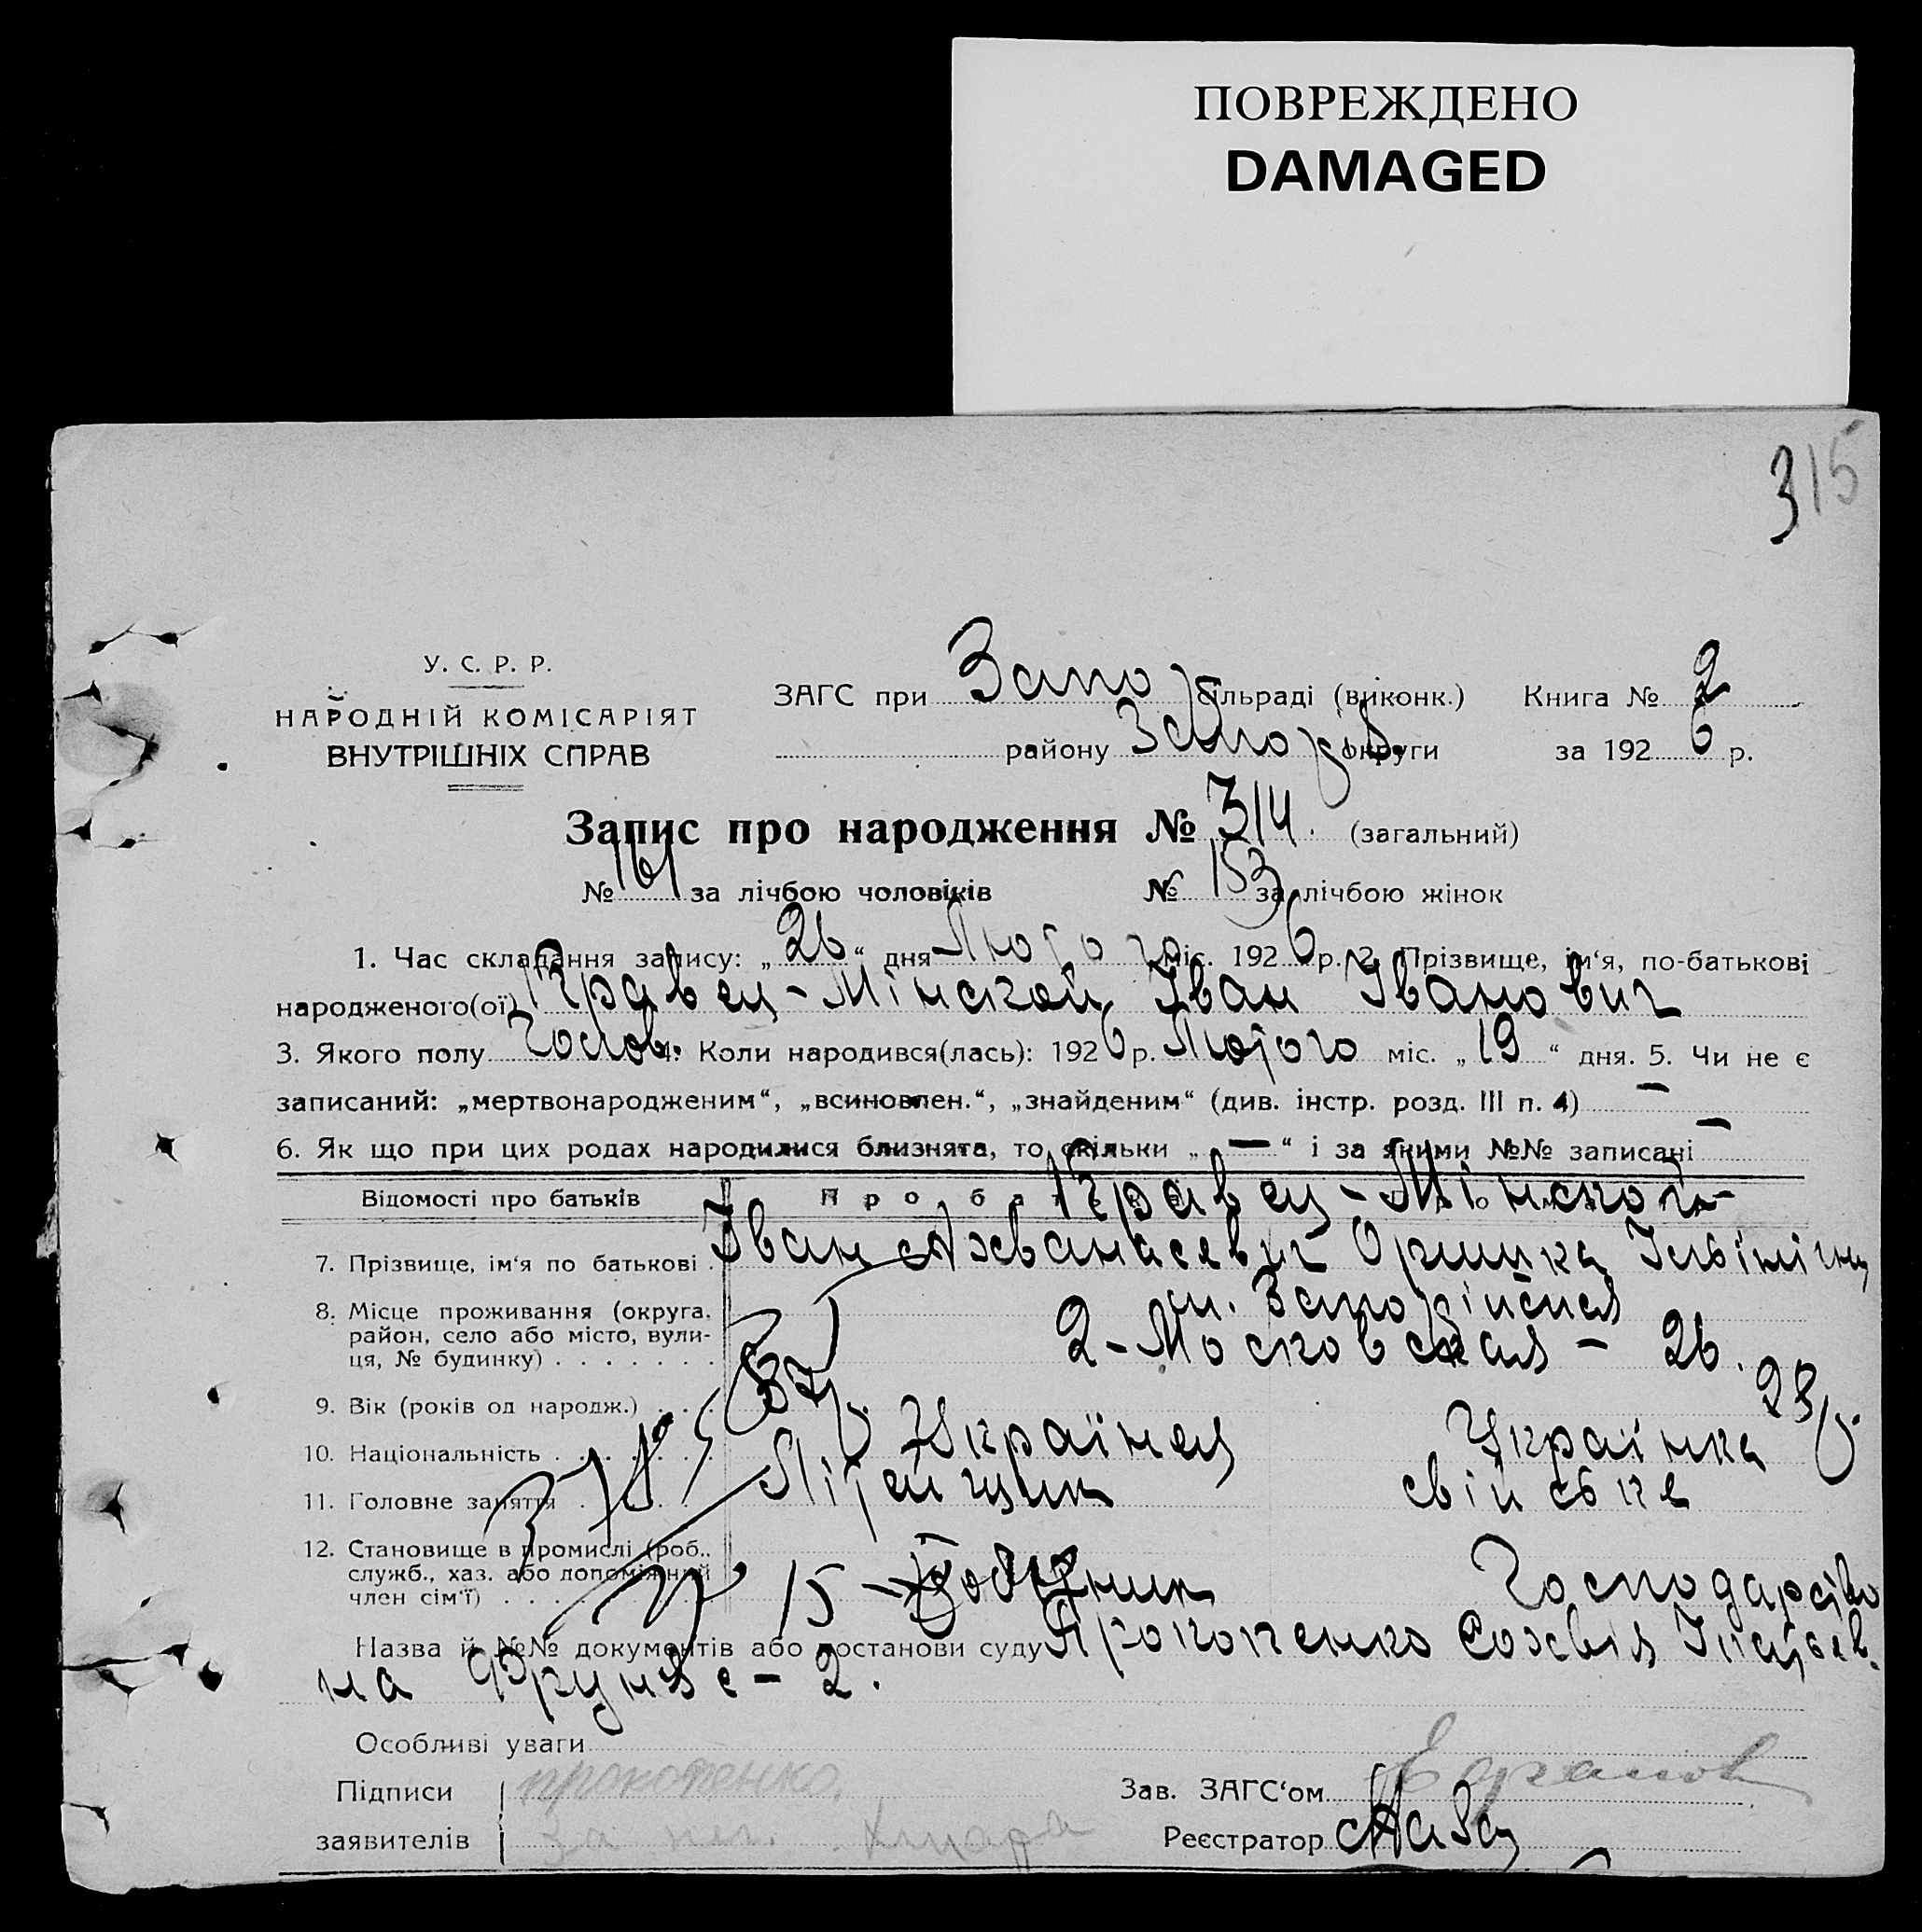 ПОВРЕЖДЕНО
DAMAGED
315
У. С. Р. Р.
НАРОДНІЙ КОМІСАРІЯТ
ВНУТРІШНІХ СПРАВ
ЗАГС при Запор сільраді (виконк.) Книга № 2
району Запоріз округи за 1926 р.
Запис про народження № 314. (загальний)
№ 161 за лічбою чоловіків № 153 за лічбою жінок
1. Час складання запису: „26“ дня Лютого міс. 1926 р. 2. Прізвище, ім‘я, по-батькові
народженого(ої) Кравец-Мінской Іван Іванович
3. Якого полу Чолов. 4. Коли народився(лась): 1926 р. Лютого міс. „19“ дня. 5. Чи не є
записаний: „мертвонародженим“, „всиновлен.“, „знайденим“ (див. інстр. розд. III п. 4) —
6. Як що при цих родах народилися близнята, то скільки „—“ і за якими №№ записані —
Відомості про батьків Про бат Кравец-Мінской
7. Прізвище, ім‘я по батькові . Іван Афанасевич Оришка
8. Місце проживання (округа, район, село або місто, вулиця, № будинку) . . . . . . . м.
2-Московская - 26.
9. Вік (років од народж.) . . . . 37 28
10. Національність . . . . . . . Українец Українка
11. Головне заняття . . . . . Літейщик свійське
12. Становище в промислі (роб., служб., хаз. або допоміжний член сім‘ї) . . . . 15 - Господарство
Назва й №№ документів або постанови суду Прокопенко Софвія
на Фрунзе - 2.
Особливі уваги
Підписи прокопенко Зав. ЗАГС‘ом
заявителів За неп. Реєстратор